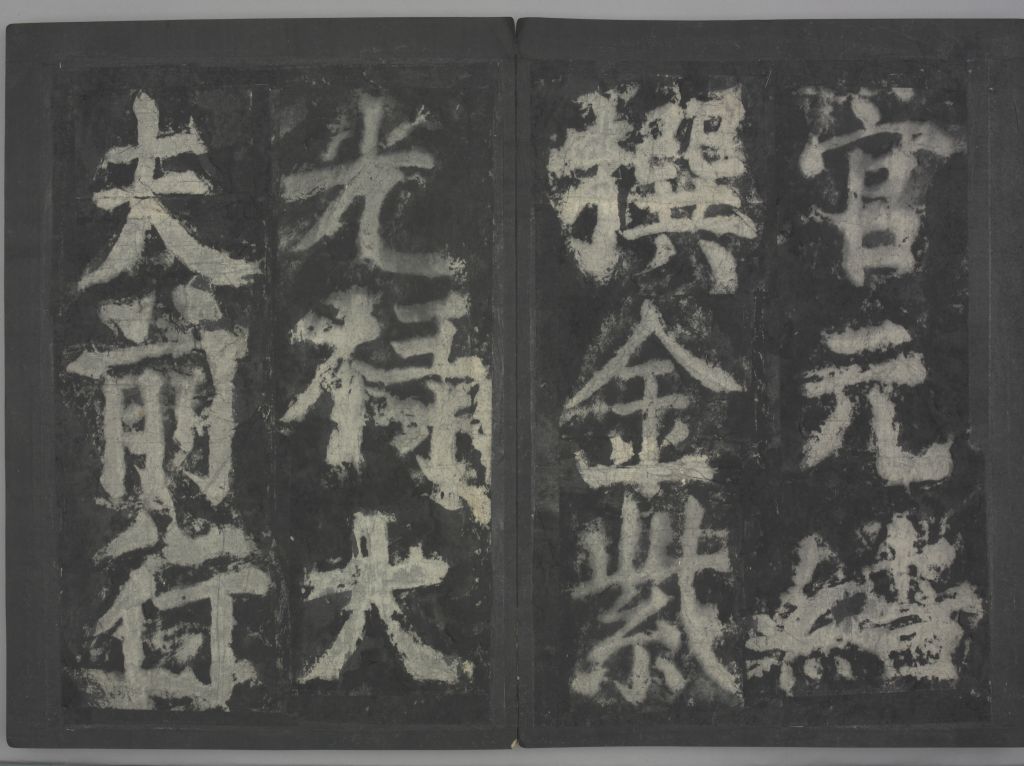 官元
撰金紫
光祿大
夫前行